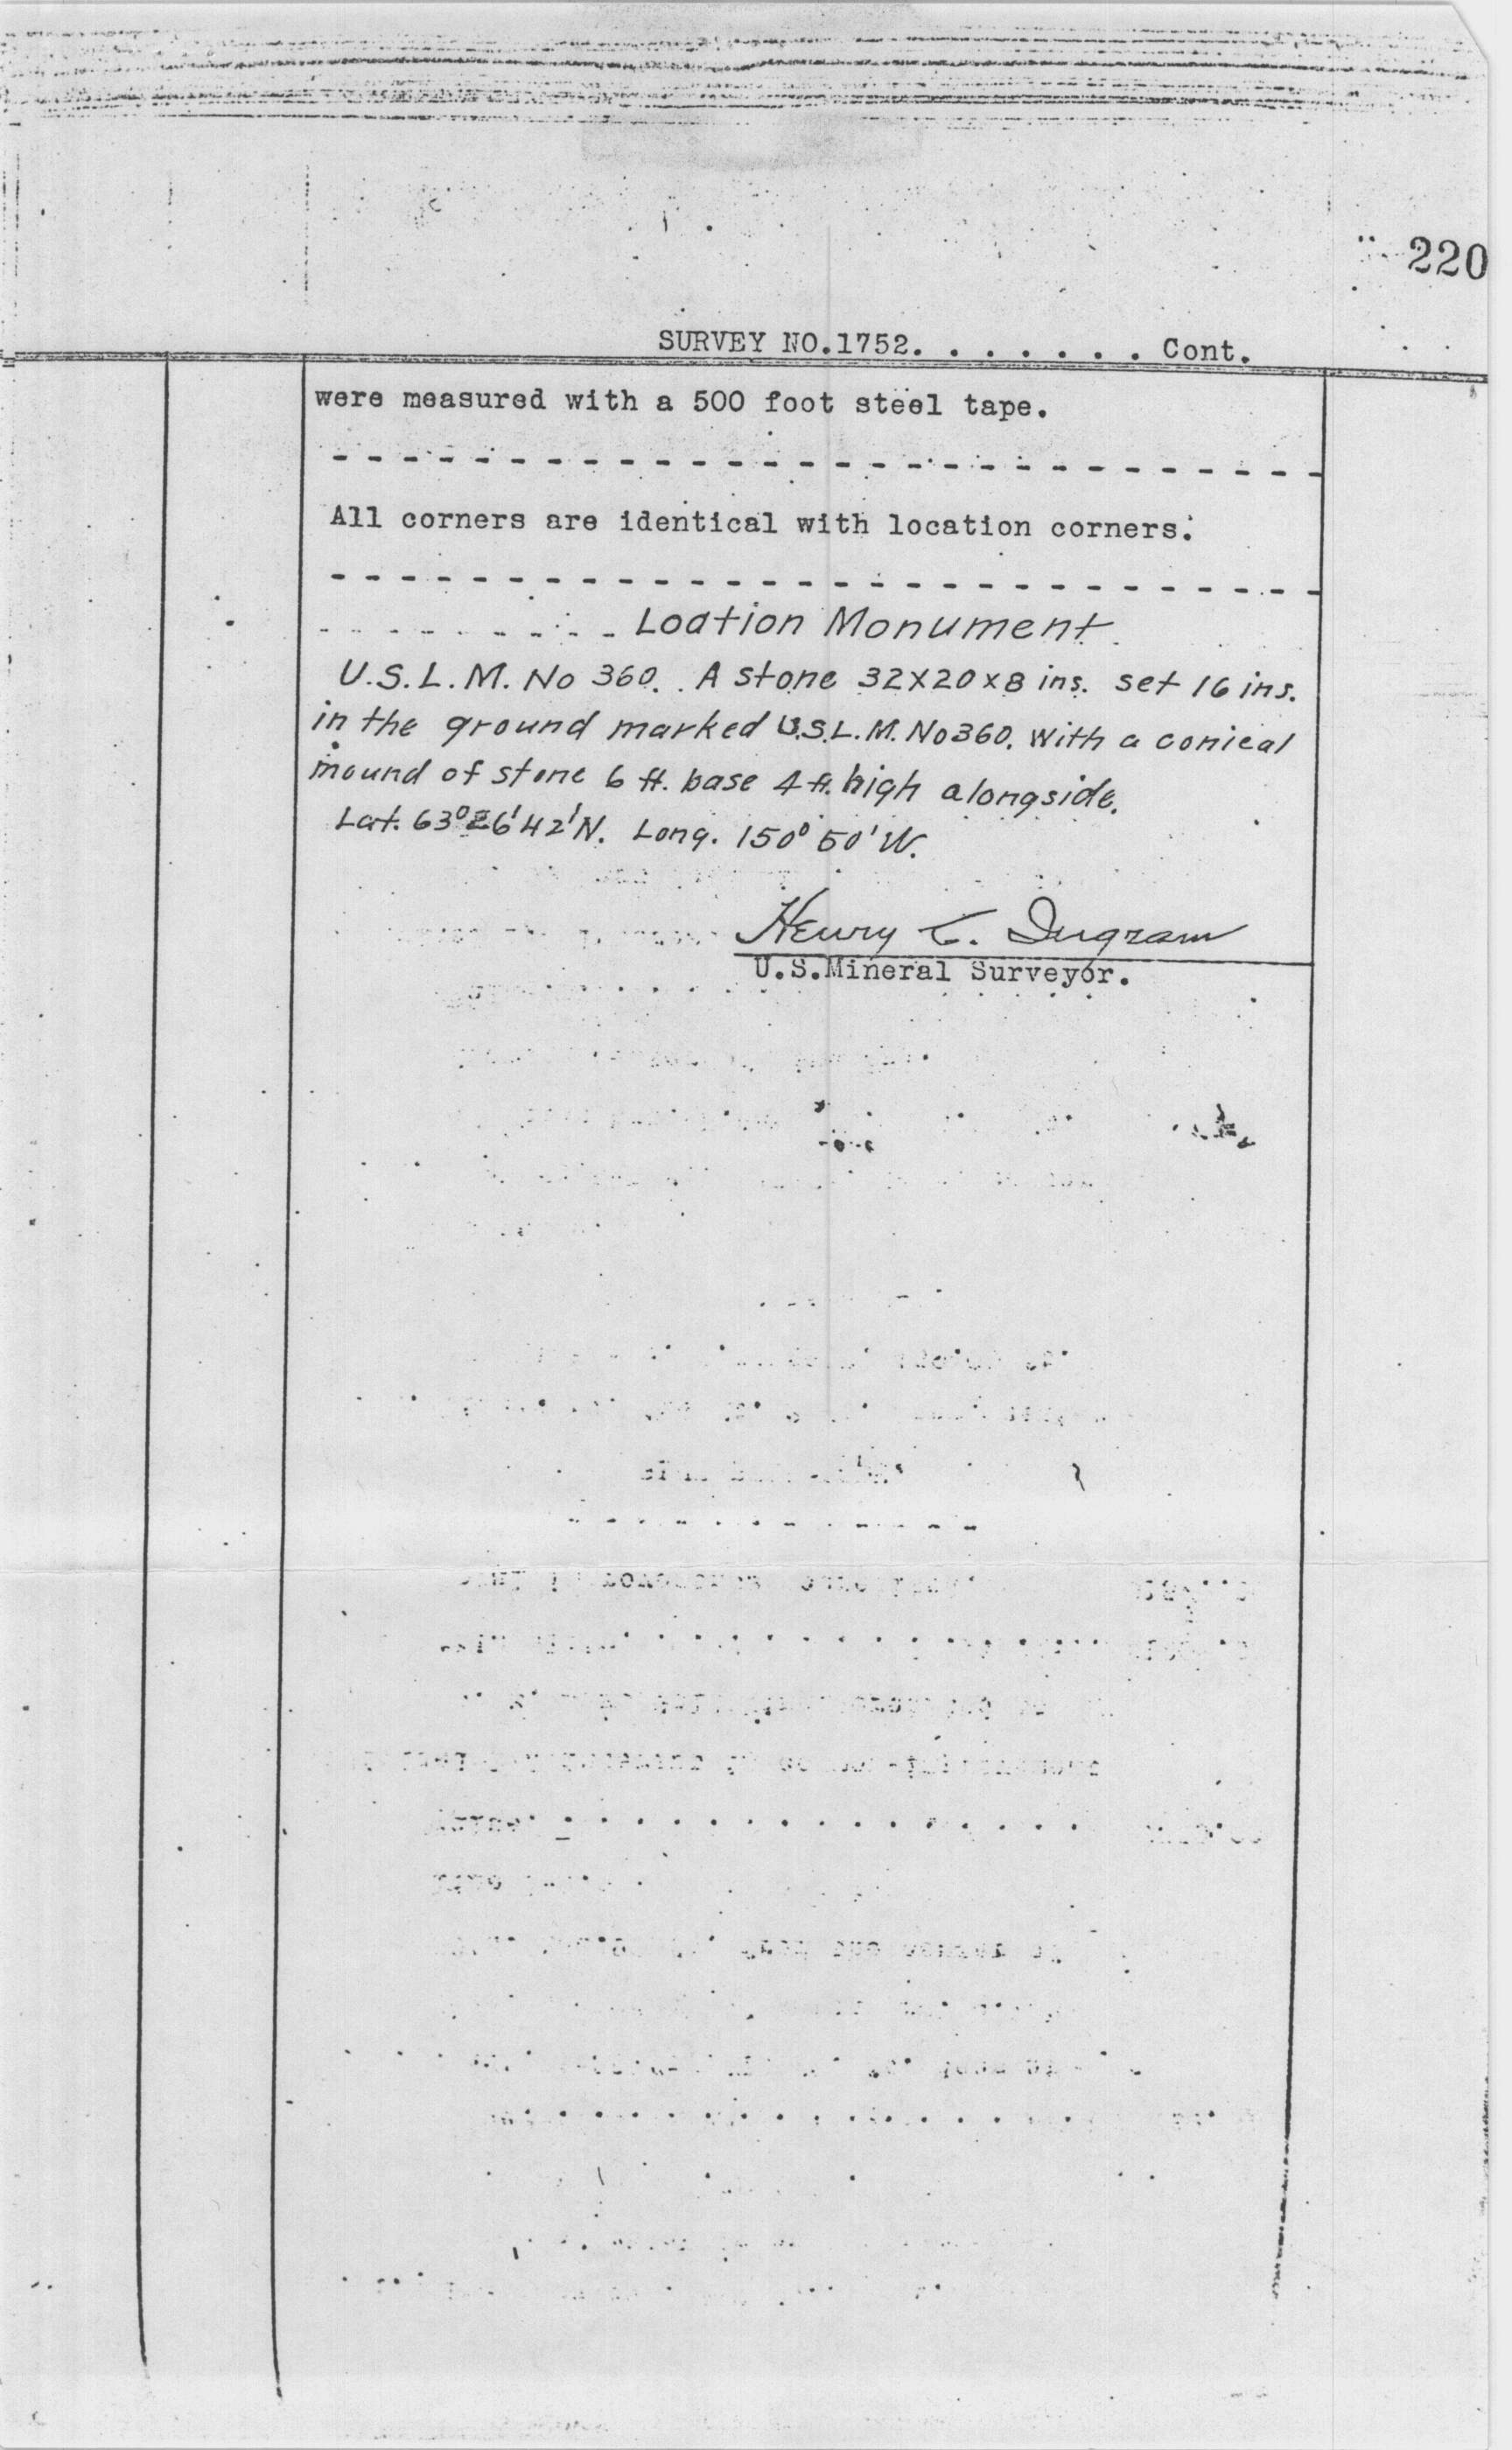 220
SURVEY NO.1752. . . . . . . Cont.
were measured with a 500 foot steel tape.
All corners are identical with location corners.
Loation Monument
U.S.L.M. No 360. A stone 32x20x8 ins. set 16 ins.
in the ground marked U.S.L.M. No 360. with a conical
mound of stone 6 ft. base 4 ft. high alongside.
Lat. 63° 26' 42' N. Long. 150° 50' W.
Henry C. Ingram
U.S.Mineral Surveyor.